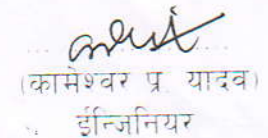 (कामेश्वर प्र. यादव)
ईन्जिनियर